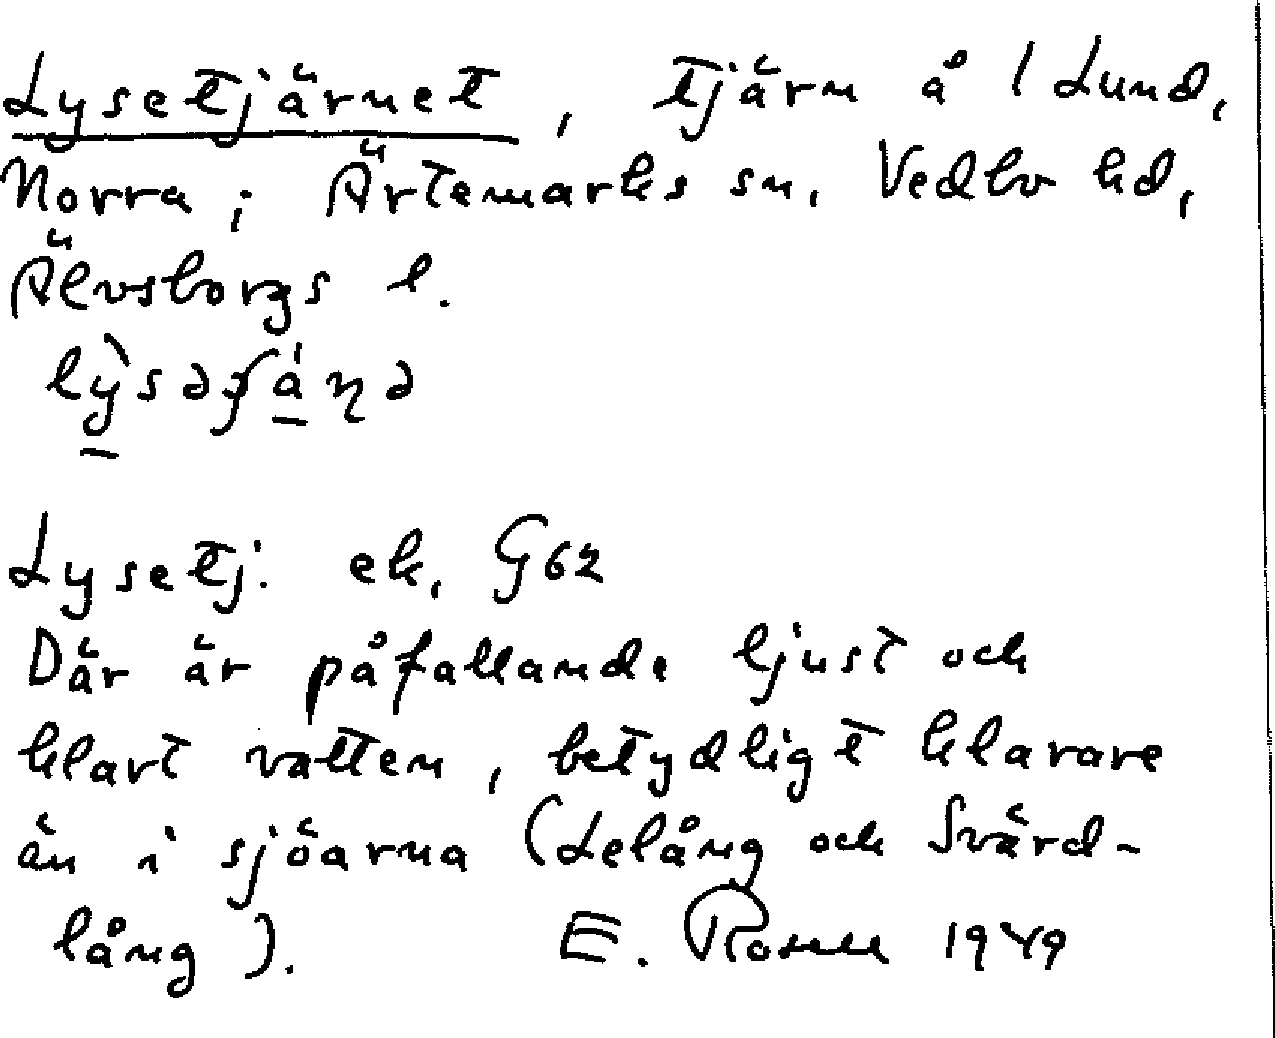 Lysetjärnet, tjärn å / Lund,
Norra; Ärtemarks sn, Vedbo hd,
Älvsborgs l.
Lysetj. ek, G62
Där är påfallande ljust och
klart vatten, betydligt klarare
än i sjöarna (Lelång och Svärd-
lång). E. Rosell 1949